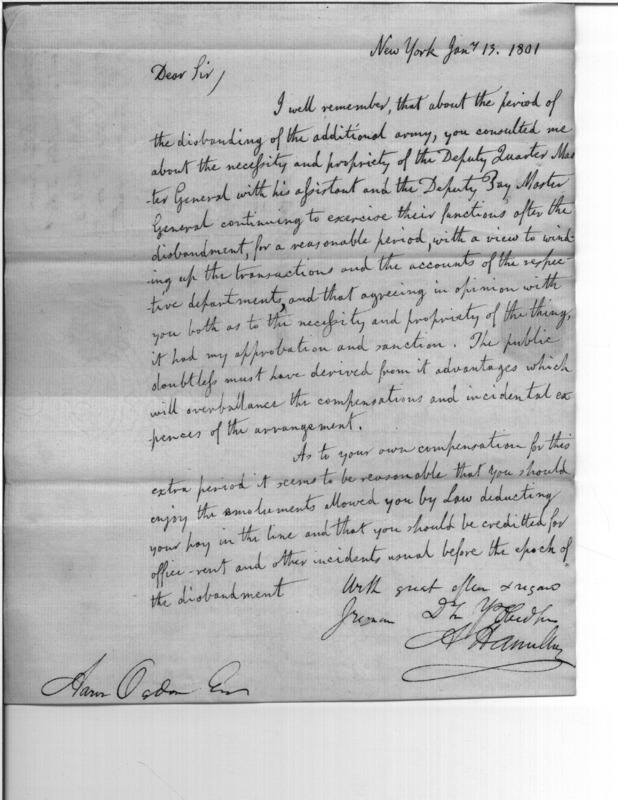 New York Jany 13. 1801
Dear Sir,
I well remember, that about the period of
the disbanding of the additional army, you consulted me
about the necessity and propriety of the Deputy Quarter Mas
-ter General with his assistant and the Deputy Pay Master
General continuing to exercise their functions after the
disbandment, for a reasonable period, with a view to wind-
ing up the transactions and the accounts of the respec-
tive departments, and that agreeing in opinion with
you both as to the necessity and propriety of the thing,
it had my approbation and sanction. The public
doubtless must have derived from it advantages which
will overballance the compensations and incidental ex
pences of the arrangement.
As to your own compensation for this
extra period it seems to be reasonable that you should
enjoy the emoluments allowed you by Law deducting
your pay in the line and that you should be creditted for
office-rent and other incidents usual before the epoch of
the disbandment
With great esteem & regard
Dr Sir Yr
A Hamilton
Aaron Ogden Esr